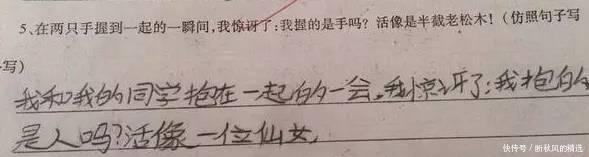 5、在两只手握到一起的一瞬间,我惊讶了:我握的是手吗?活像是半截老松木!(仿照句子写
写)
我和我的同学抱在一起的一会,我惊讶了:我抱的
是人吗?活像一位仙女,
快传号/断秋风的精选